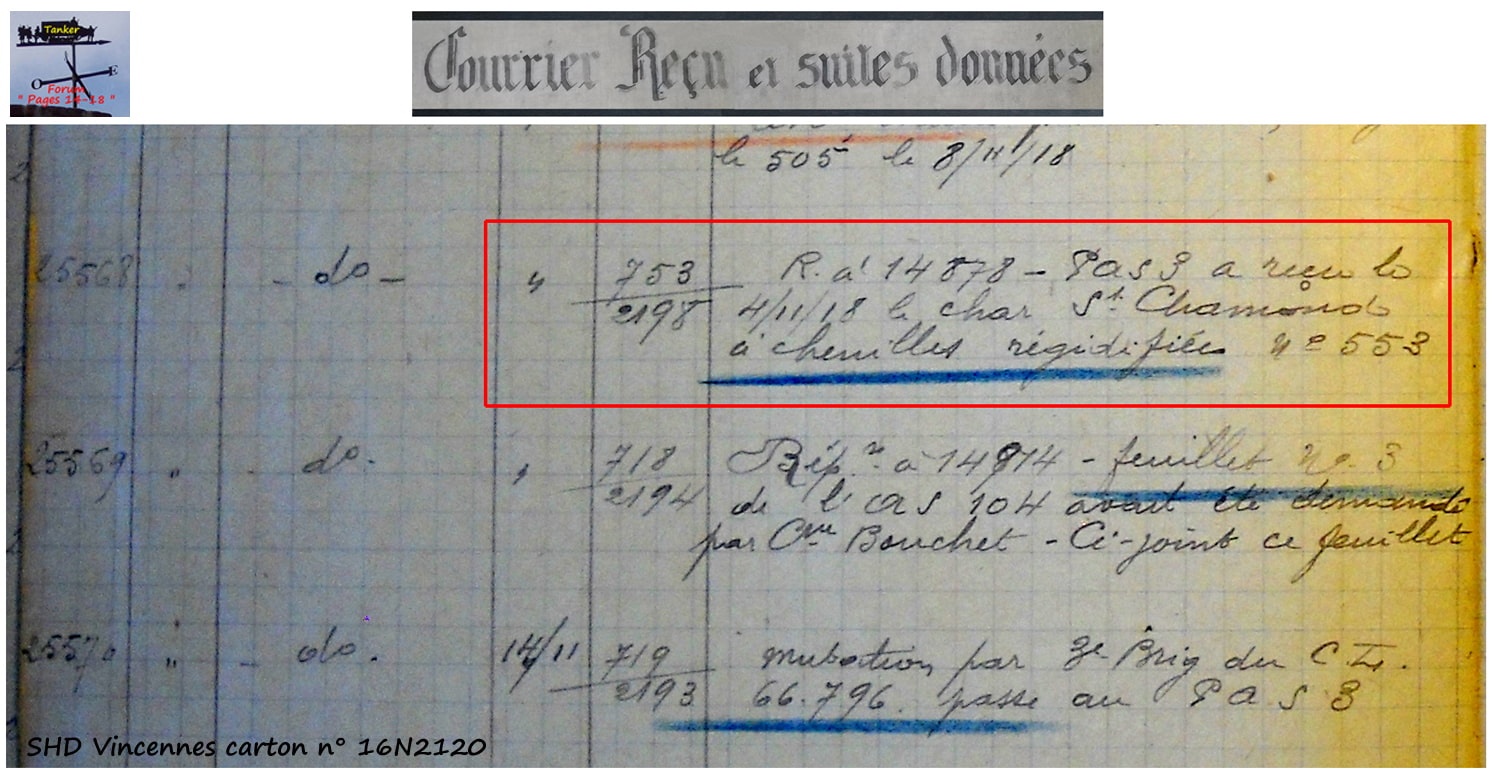 Tanker
O E
Forum
" Pages 14-18 "
Courrier Reçu et suites données
le 505e le 8/11/18
25568 " - do - " 753 R. à 14878 - PAS 3 a reçu le
2198 4/11/18 le char St Chamond
à chenilles régidifiées No 553
25569 " - do. " 718 Rép.se à 14914 - feuillet No. 3
2194 de l'AS 104 avait été demandé
par Cne Bouchet - Ci-joint ce feuillet
25570 " - do. 14/11 719 mutation par 3e Brig du C I.
2193 66.796. passe au P A S 3
SHD Vincennes carton n° 16N2120